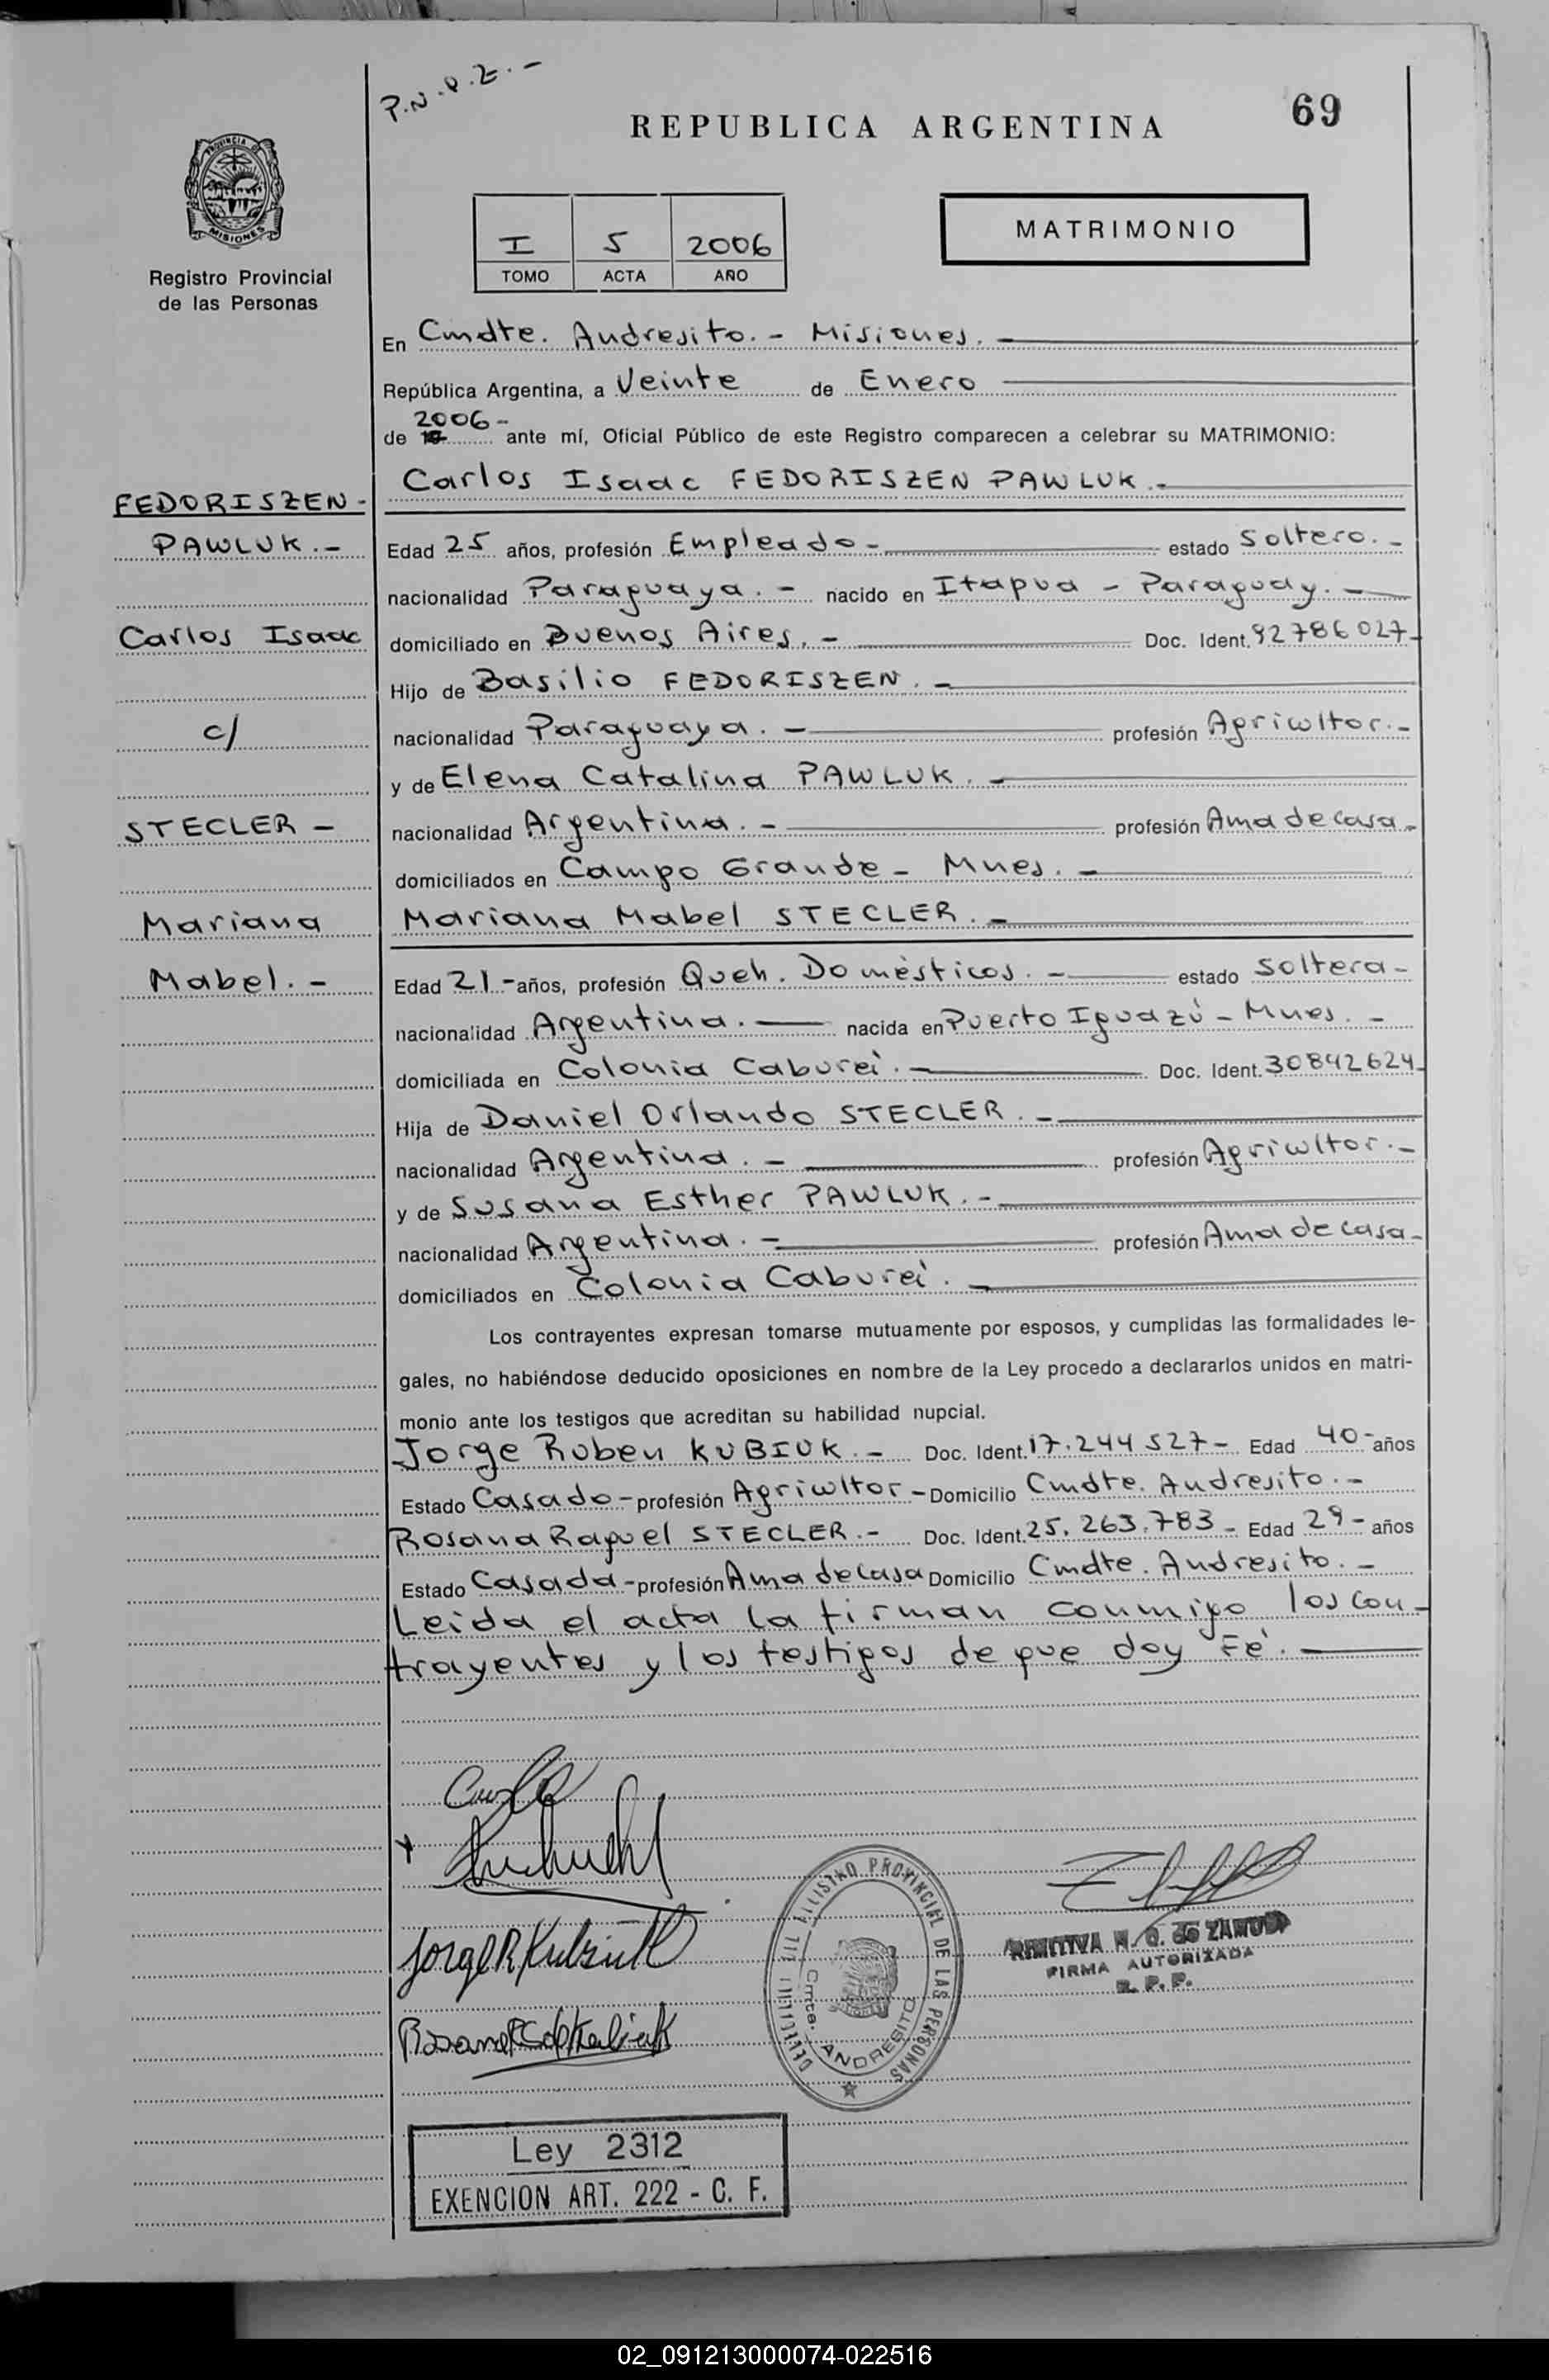 P.N.P.Z.-
REPUBLICA ARGENTINA
69
PROVINCIA DE
MISIONES
Registro Provincial
de las Personas
I 5 2006
TOMO ACTA AÑO
MATRIMONIO
En Cmdte. Andresito.- Misiones.
República Argentina, a Veinte de Enero
2006-
de 19 ante mí, Oficial Público de este Registro comparecen a celebrar su MATRIMONIO:
Carlos Isaac FEDORISZEN PAWLUK.-
FEDORISZEN-
PAWLUK.-
Carlos Isaac
c/
STECLER -
Mariana
Mabel.-
Edad 25 años, profesión Empleado- estado Soltero.-
nacionalidad Paraguaya.- nacido en Itapua - Paraguay.-
domiciliado en Buenos Aires.- Doc. Ident. 92786027-
Hijo de Basilio FEDORISZEN.-
nacionalidad Paraguaya.- profesión Agricultor.-
y de Elena Catalina PAWLUK.-
nacionalidad Argentina.- profesión Ama de casa-
domiciliados en Campo Grande- Mnes.-
Mariana Mabel STECLER.-
Edad 21-años, profesión Queh. Domésticos.- estado Soltera-
nacionalidad Argentina.- nacida en Puerto Iguazú- Mnes.-
domiciliada en Colonia Caburei.- Doc. Ident. 30842624-
Hija de Daniel Orlando STECLER.-
nacionalidad Argentina.- profesión Agricultor.-
y de Susana Esther PAWLUK.-
nacionalidad Argentina.- profesión Ama de casa-
domiciliados en Colonia Caburei.-
Los contrayentes expresan tomarse mutuamente por esposos, y cumplidas las formalidades le-
gales, no habiéndose deducido oposiciones en nombre de la Ley procedo a declararlos unidos en matri-
monio ante los testigos que acreditan su habilidad nupcial.
Jorge Ruben KUBIUK.- Doc. Ident. 17.244527- Edad 40- años
Estado Casado- profesión Agricultor- Domicilio Cmdte. Andresito.-
Rosana Raquel STECLER.- Doc. Ident. 25.263.783- Edad 29- años
Estado Casada- profesión Ama de casa Domicilio Cmdte. Andresito.-
Leida el acta la firman conmigo los con-
trayentes y los testigos de que doy Fé.
Jorge R Kubiuk
PROVINCIAL DE LAS PERSONAS
Cmte. ANDRESITO
FIRMA AUTORIZADA
R. P. P.
Ley 2312
EXENCION ART. 222 - C. F.
02_091213000074-022516